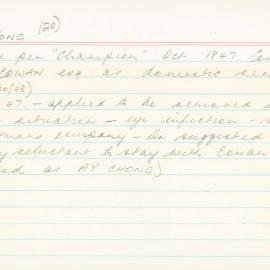 ONG (20)
per "Champion" Oct 1847
COWAN esq as domestic
47 - applied to be removed
situation - eye infection -
company - Dr suggested
reluctant to stay with Cowan
as AY CHONG)